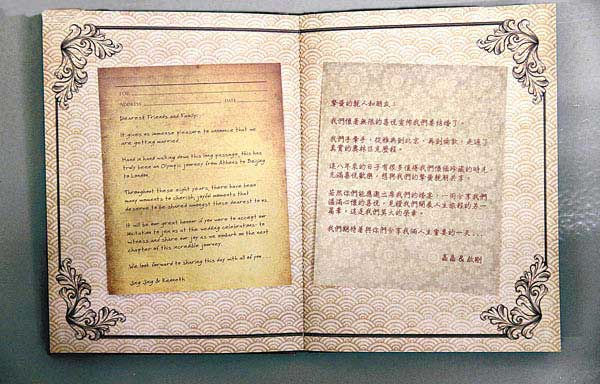 FOR
ADDRESS DATE
Dearest Friends and Family:
It gives us immense pleasure to announce that we
are getting married.
Hand in hand walking down this long passage, this has
truly been an Olympic journey from Athens to Beijing
to London.
Throughout these eight years, there have been
many moments to cherish, joyful moments that
deserve to be shared amongst those dearest to us.
It will be our great honour if you were to accept our
invitation to join us at the wedding celebrations- to
witness and share our joy as we embark on the next
chapter of this incredible journey.
We look forward to sharing this day with all of you.
Jing Jing & Kenneth
摯愛的親人和朋友：
我們懷著無限的喜悅宣佈我們要結婚了。
我們手牽手，從雅典到北京，再到倫敦，走過了
真實的奧林匹克歷程。
這八年來的日子有很多值得我們倆個珍藏的時光，
充滿喜悅歡樂，想與我們的摯愛親朋共享。
若然你們能應邀出席我們的婚宴，一同分享我們
滿滿心懷的喜悅，見證我們開展人生旅程的另一
篇章，這是我們莫大的榮幸。
我們期待著與你們分享我倆人生重要的一天...
晶晶 & 啟剛